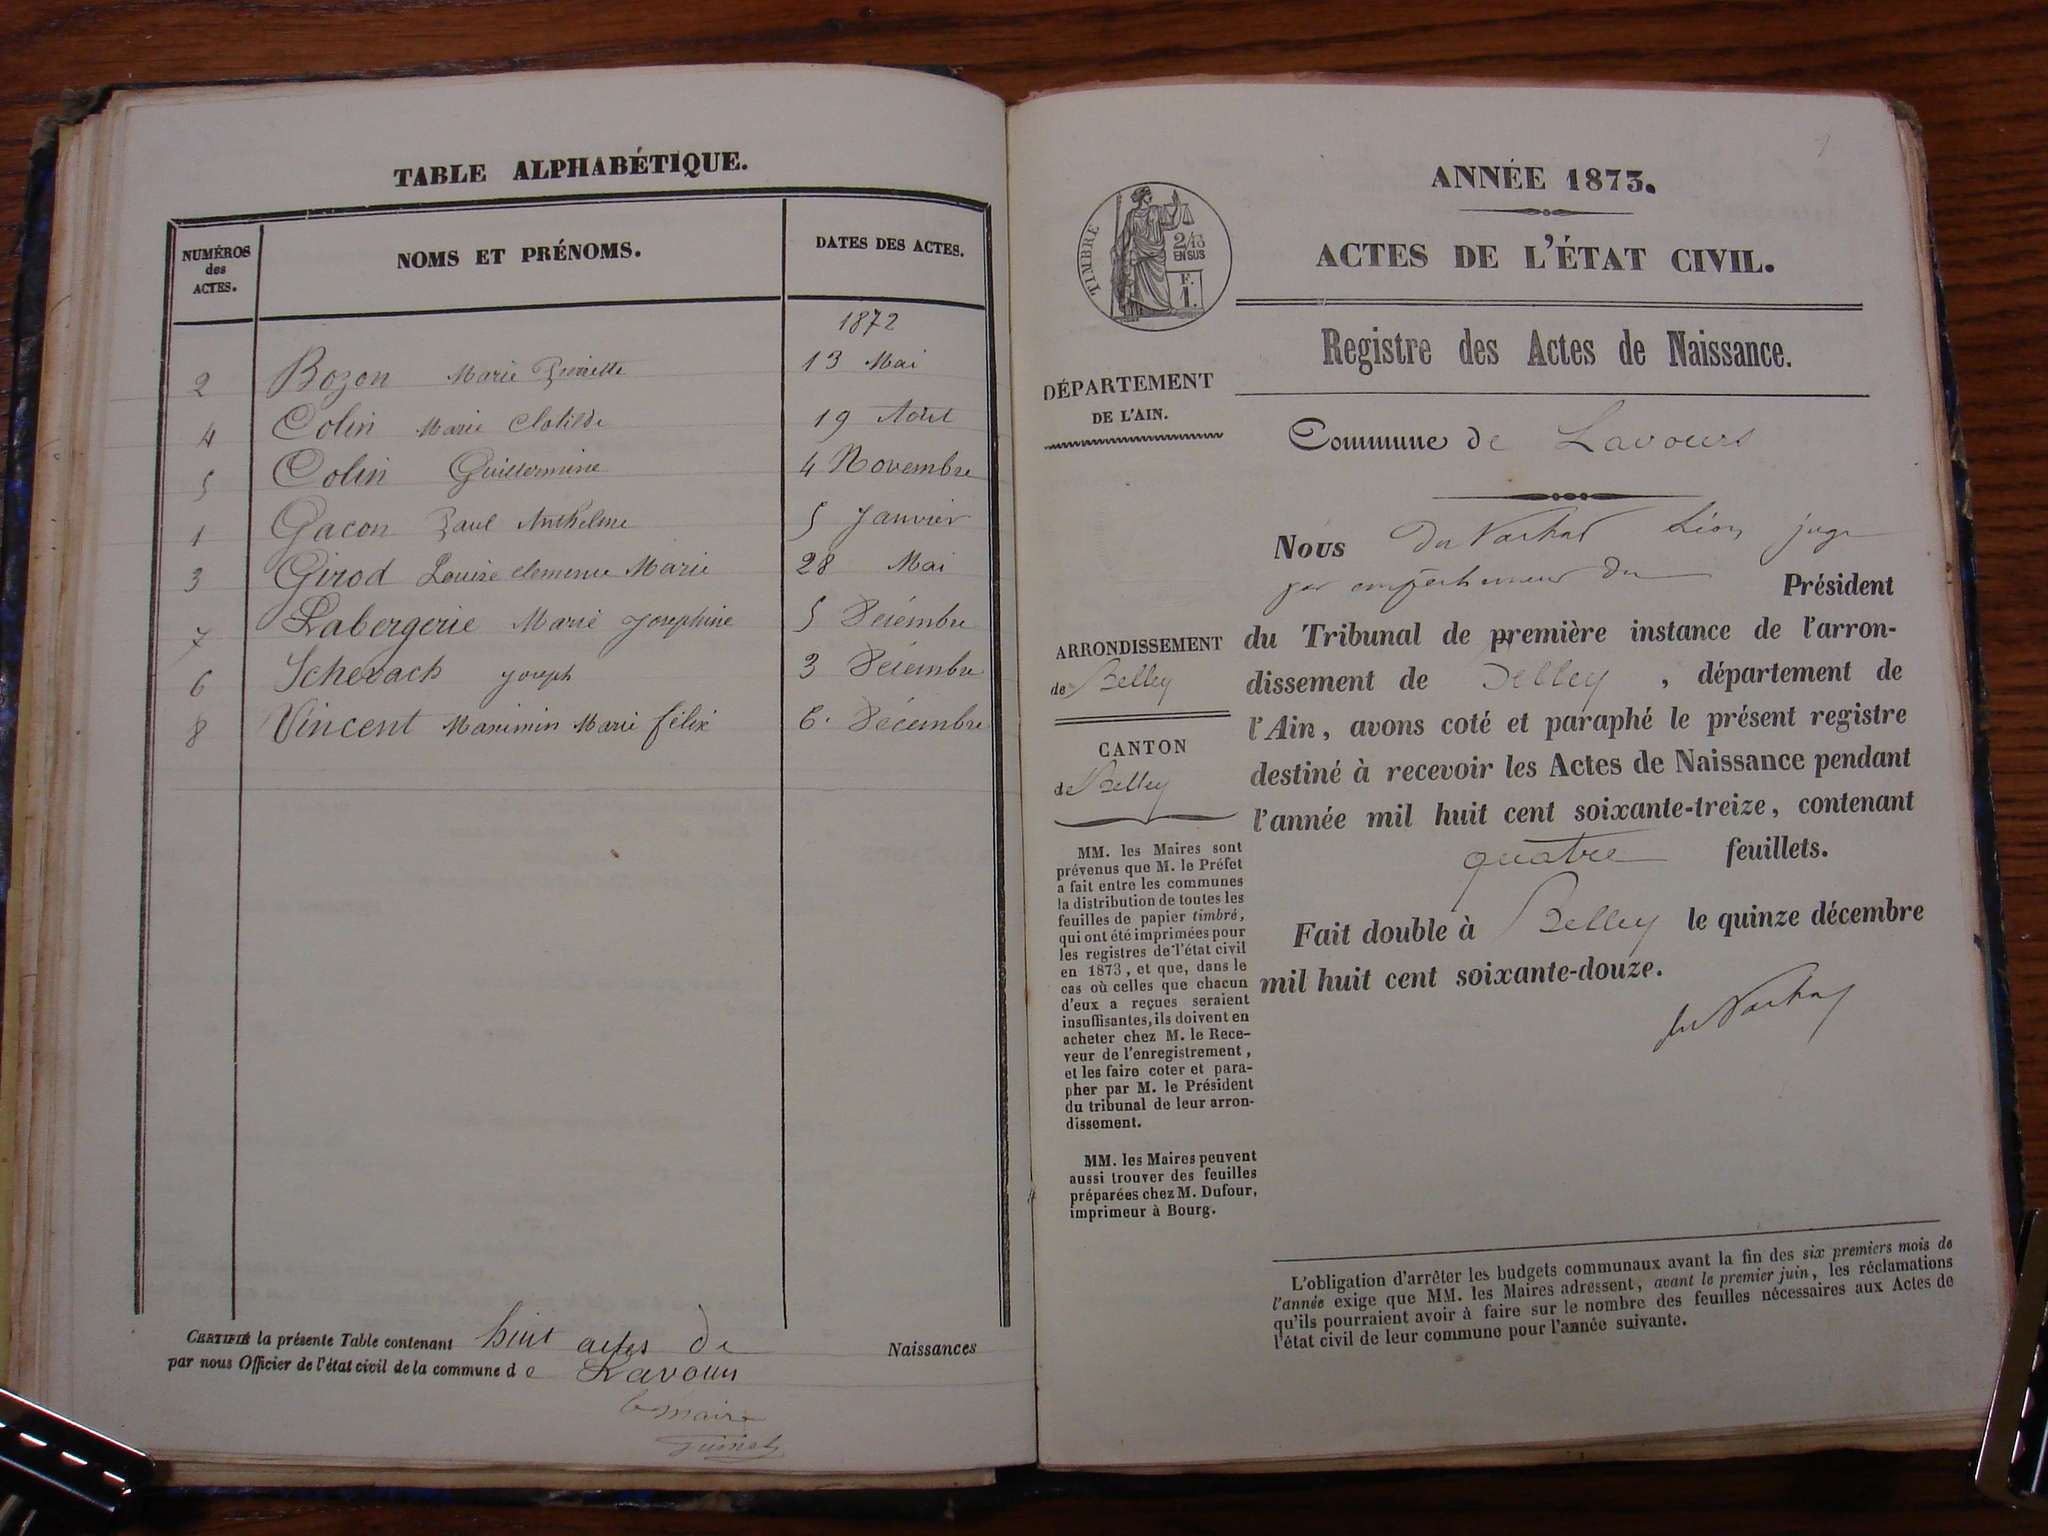 TABLE ALPHABÉTIQUE.
NUMÉROS des ACTES. NOMS ET PRÉNOMS. DATES DES ACTES.
1872
2 Bozon Marie Pierrette 13 Mai
4 Colin Marie Clotilde 19 Août
5 Colin Guillermine 4 Novembre
1 Gacon Paul Anthelme 5 Janvier
3 Girod Louise Clemence Marie 28 Mai
7 Labergerie Marie Josephine 5 Décembre
6 Joseph 3 Décembre
8 Vincent Maximin Marie félix 6. Décembre
CERTIFIÉ la présente Table contenant huit actes de Naissances
par nous Officier de l'état civil de la commune de Lavours
le maire
1
ANNÉE 1873.
ACTES DE L'ÉTAT CIVIL.
TIMBRE
2/10
EN SUS
F.
1.
Registre des Actes de Naissance.
DÉPARTEMENT
DE L'AIN.
Commune de Lavours
Nous Léon juge
par empêchement du Président
du Tribunal de première instance de l'arron-
dissement de Belley, département de
l'Ain, avons coté et paraphé le présent registre
destiné à recevoir les Actes de Naissance pendant
l'année mil huit cent soixante-treize, contenant
quatre feuillets.
Fait double à Belley le quinze décembre
mil huit cent soixante-douze.
ARRONDISSEMENT
de Belley
CANTON
de Belley
MM. les Maires sont
prévenus que M. le Préfet
a fait entre les communes
la distribution de toutes les
feuilles de papier timbré,
qui ont été imprimées pour
les registres de l'état civil
en 1873, et que, dans le
cas où celles que chacun
d'eux a reçues seraient
insuffisantes, ils doivent en
acheter chez M. le Rece-
veur de l'enregistrement,
et les faire coter et para-
pher par M. le Président
du tribunal de leur arron-
dissement.
MM. les Maires peuvent
aussi trouver des feuilles
préparées chez M. Dufour,
imprimeur à Bourg.
L'obligation d'arrêter les budgets communaux avant la fin des six premiers mois de
l'année exige que MM. les Maires adressent, avant le premier juin, les réclamations
qu'ils pourraient avoir à faire sur le nombre des feuilles nécessaires aux Actes de
l'état civil de leur commune pour l'année suivante.